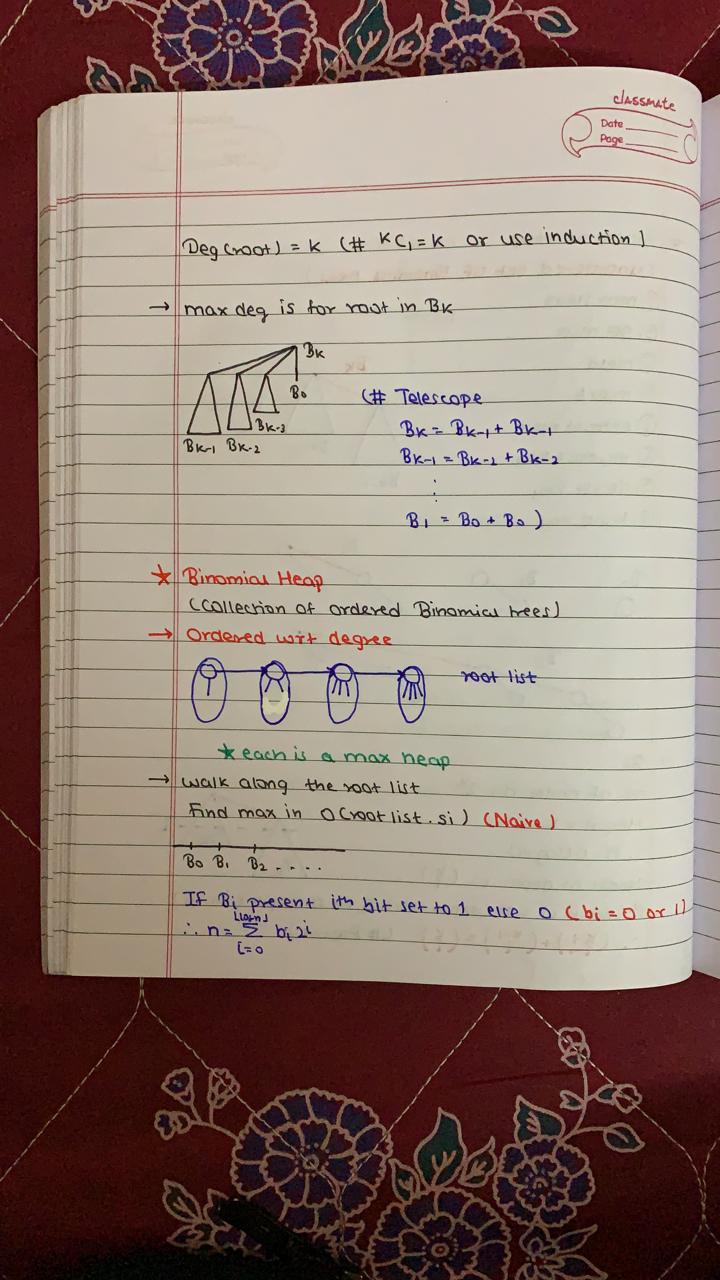 classmate
Date
Page
Deg(root) = K (# KC1 = K or use induction)
→ max deg is for root in BK
BK
B0
BK-3
BK-1 BK-2
(# Telescope
BK = BK-1 + BK-1
BK-1 = BK-2 + BK-2
⋮
B1 = B0 + B0 )
★ Binomial Heap
(Collection of ordered Binomial trees)
→ Ordered wrt degree
root list
★ each is a max heap
→ walk along the root list
Find max in O(root list.si) (Naive)
B0 B1 B2 ....
If Bi present ith bit set to 1 else 0 (bi = 0 or 1)
∴ n = ⌊logn⌋ Σ i=0 bi 2^i